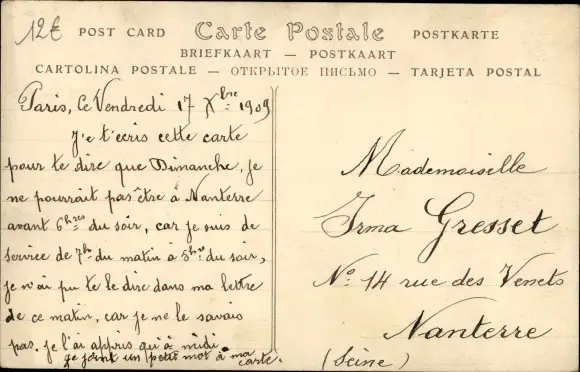 12€
POST CARD
Carte Postale
POSTKARTE
BRIEFKAART — POSTKAART
CARTOLINA POSTALE — ОТКРЫТОЕ ПИСЬМО — TARJETA POSTAL
Paris, le Vendredi 17 Xbre 1909
Je t'écris cette carte
pour te dire que Dimanche, je
ne pourrait pas être à Nanterre
avant 6hres du soir, car je suis de
service de 7h du matin à 5hres du soir,
je n'ai pu te le dire dans ma lettre
de ce matin, car je ne le savais
pas. je l'ai appris qu'à midi.
je joint un petit mot à ma
carte.
Mademoiselle
Irma Gresset
No 14 rue des Venets
Nanterre
(Seine)